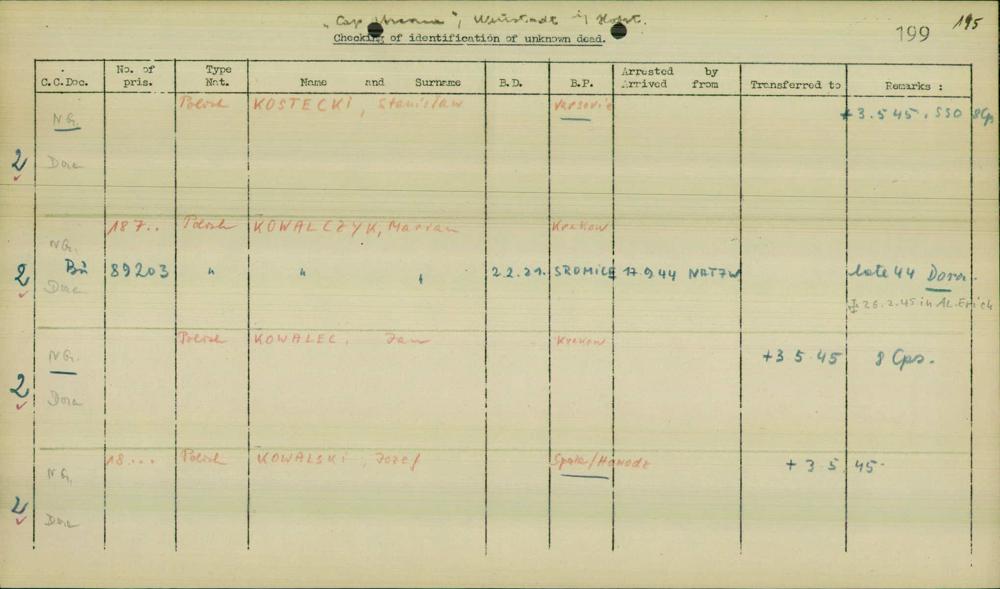 "Cap Arcona", Neustadt i/ Holst.
Checking of identification of unknown dead.
199
195
C.C.Doc. No. of pris. Type Nat. Name and Surname B.D. B.P. Arrested by Arrived from Transferred to Remarks :
Polish KOSTECKI, Stanislaw Varsovie
N G. + 3.5 45, SSO 8Cps
2 Dora
187.. Polish KOWALCZYK, Marian Krakow
N G.
2 Bu 89203 " " " 2.2.21. SROMICE 17.9.44 late 44 Dora.
Dora
26.2.45 in AL. Erich
Polish KOWALEC, Jan Krakow
N G. +3 5 45 8 Cps.
2 Dora
18... Polish KOWALSKI, Jozef + 3 5 45.
N G.
2 Dora